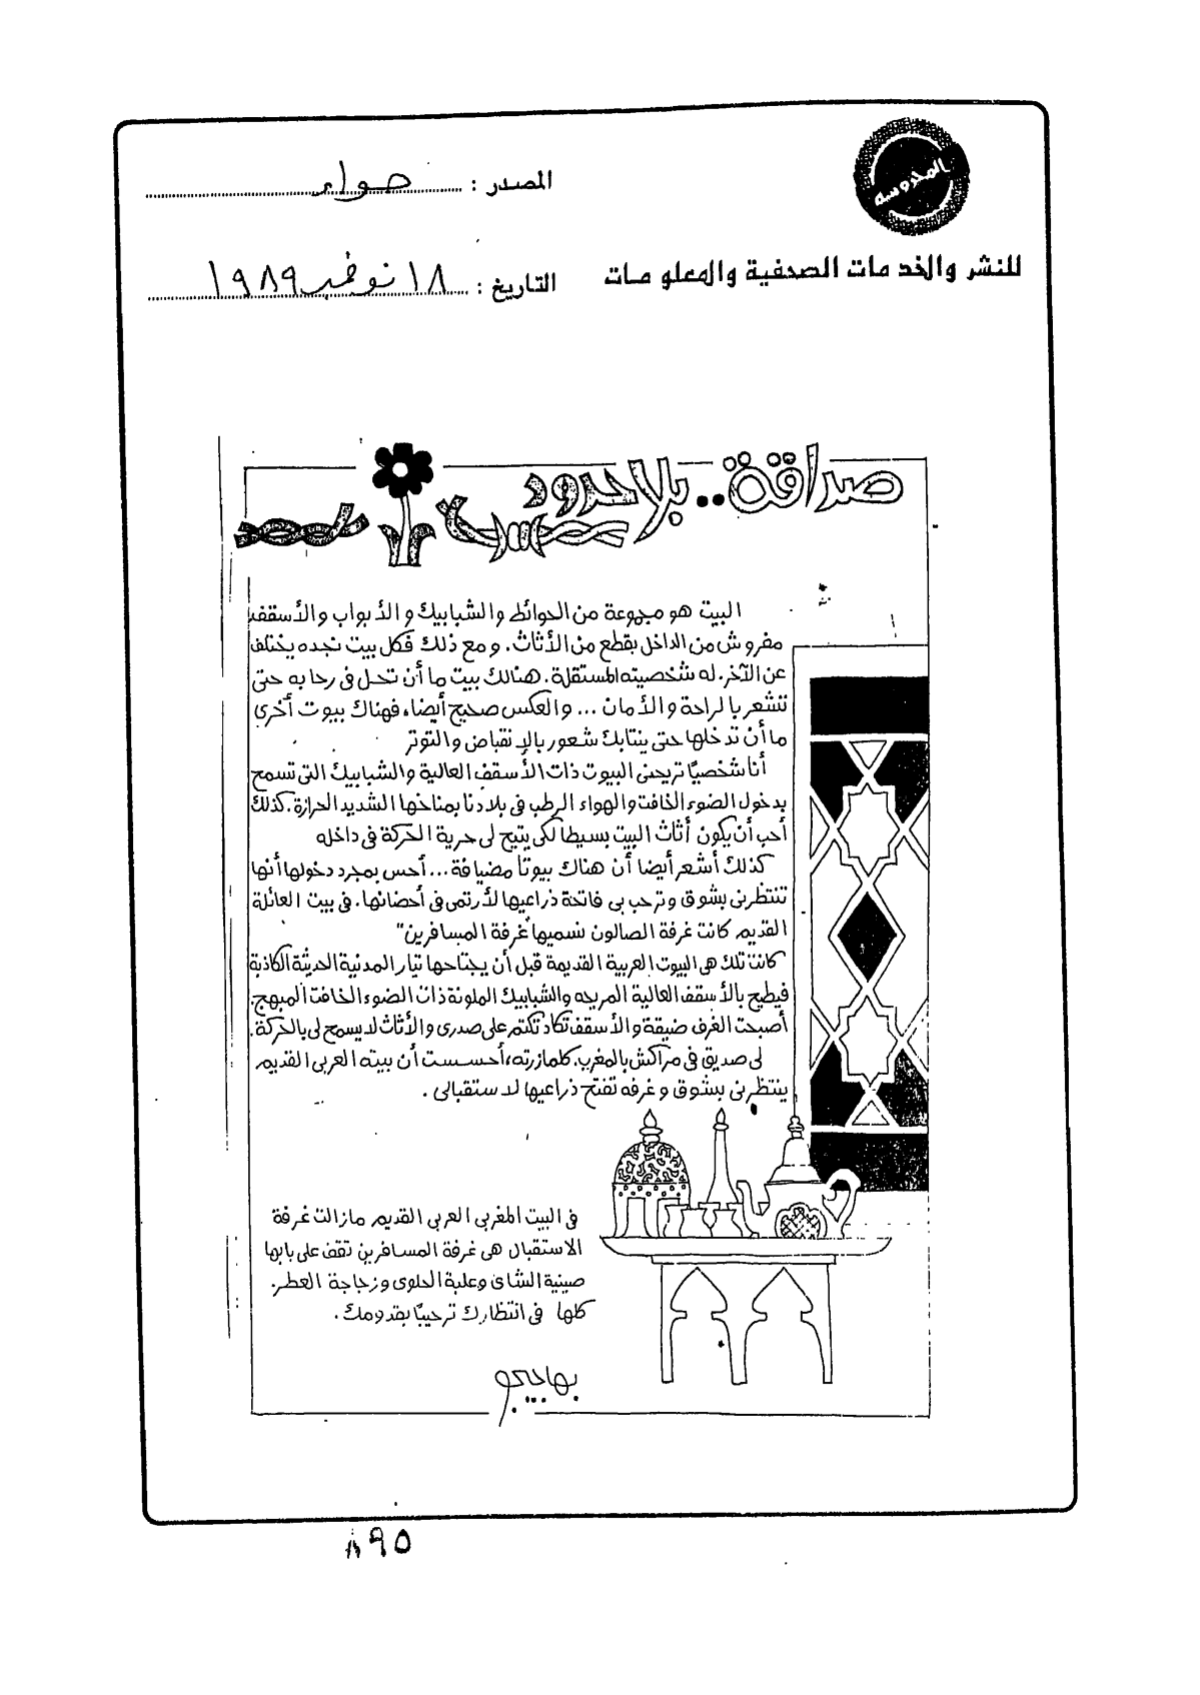 المحروسه
للنشر والخدمات الصحفية والمعلومات
المصدر : حواء
التاريخ : ١٨ نوفمبر ١٩٨٩
صداقة.. بلا حدود
البيت هو مجموعة من الحوائط والشبابيك والأبواب والأسقف
مفروش من الداخل بقطع من الأثاث. ومع ذلك فكل بيت نجده يختلف
عن الآخر. له شخصيته المستقلة. هنالك بيت ما أن تحل فى رحابه حتى
تشعر بالراحة والأمان ... والعكس صحيح أيضا، فهناك بيوت أخرى
ما أن تدخلها حتى ينتابك شعور بالإنقباض والتوتر
أنا شخصيًا تريحنى البيوت ذات الأسقف العالية والشبابيك التى تسمح
بدخول الضوء الخافت والهواء الرطب فى بلادنا بمناخها الشديد الحرارة. كذلك
أحب أن يكون أثاث البيت بسيطا لكى يتيح لى حرية الحركة فى داخله
كذلك أشعر أيضا أن هناك بيوتا مضيافة... أحس بمجرد دخولها أنها
تنتظرنى بشوق وترحب بى فاتحة ذراعيها لأرتمى فى أحضانها. فى بيت العائلة
القديم كانت غرفة الصالون نسميها غرفة المسافرين"
كانت تلك هى البيوت العربية القديمة قبل أن يجتاحها تيار المدنية الحديثة الكاذبة
فيطيح بالأسقف العالية المريحه والشبابيك الملونة ذات الضوء الخافت المبهج.
أصبحت الغرف ضيقة والأسقف تكاد تكتم على صدرى والأثاث لا يسمح لى بالحركة.
لى صديق فى مراكش بالمغرب. كلما زرته، أحسست أن بيته العربى القديم
ينتظرنى بشوق وغرفه تفتح ذراعيها لاستقبالى .
فى البيت المغربى العربى القديم مازالت غرفة
الاستقبال هى غرفة المسافرين تقف على بابها
صينية الشاى وعلبة الحلوى وزجاجة العطر.
كلها فى انتظارك ترحيبًا بقدومك.
بهاجيجو
٨٩٥